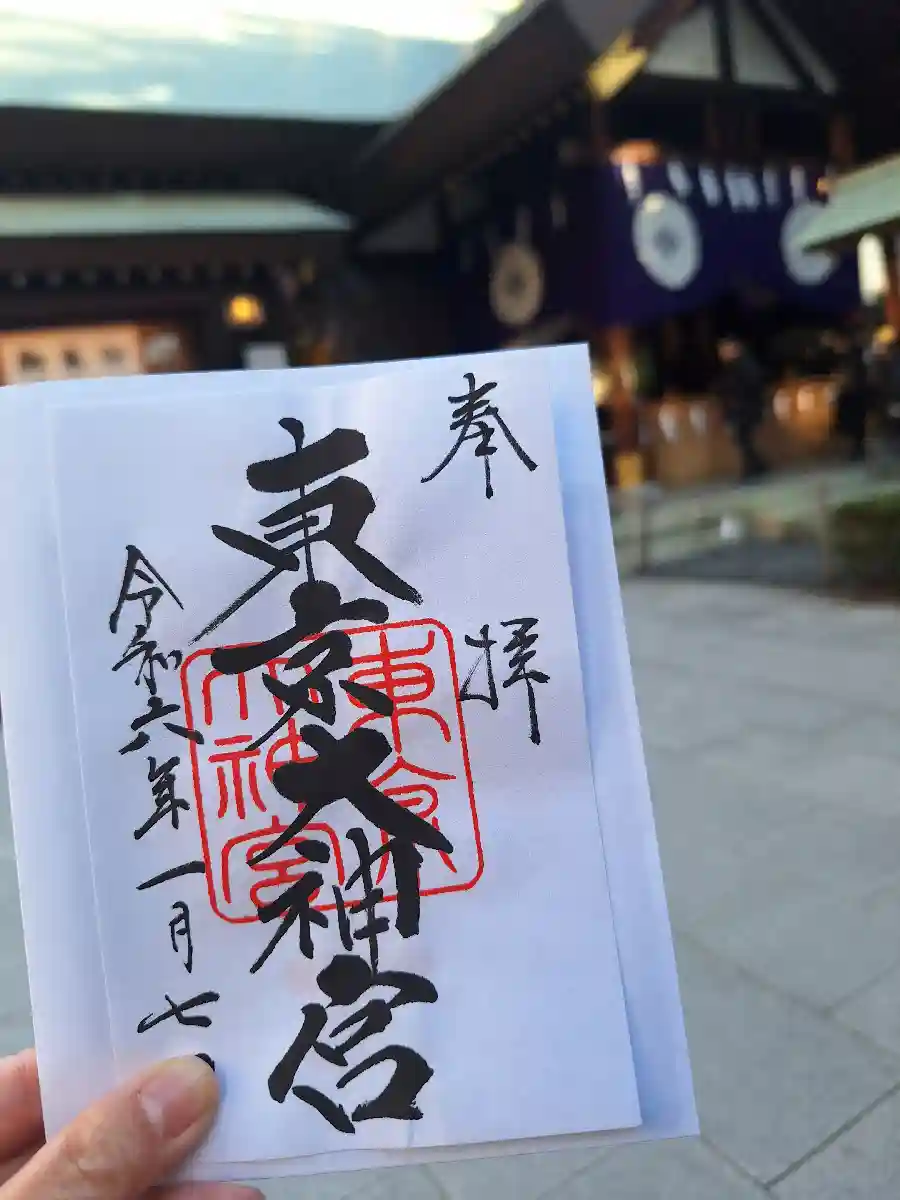 奉拝
東京大神宮
令和六年一月七
東京大神宮